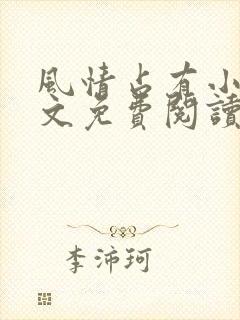 風情占有小
文免費閱讀
李沛珂